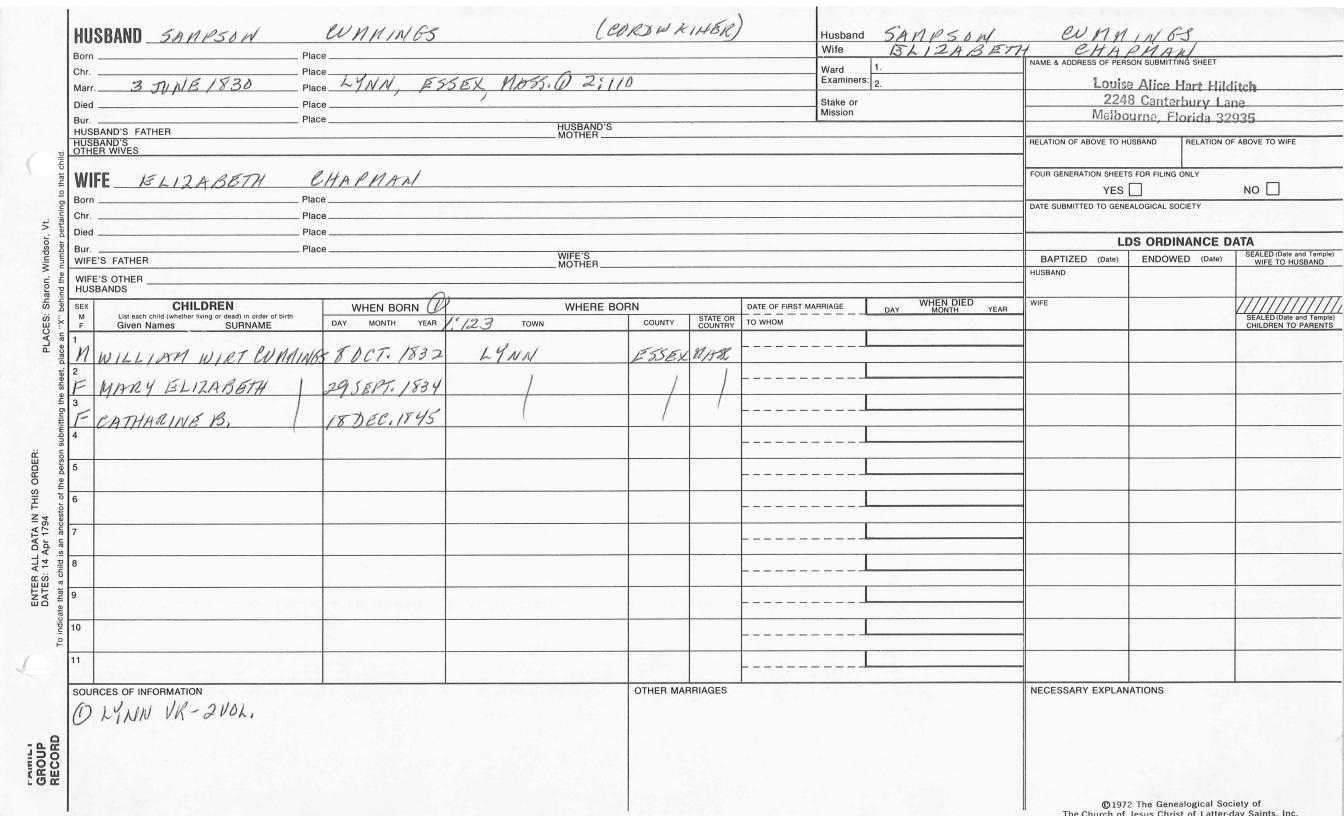 HUSBAND SAMPSON CUMMINGS (CORDWAINER)
Born Place
Chr. Place
Marr. 3 JUNE 1830 Place LYNN, ESSEX, MASS. ① 2:110
Died Place
Bur. Place
HUSBAND'S FATHER HUSBAND'S MOTHER
HUSBAND'S OTHER WIVES
WIFE ELIZABETH CHAPMAN
Born Place
Chr. Place
Died Place
Bur. Place
WIFE'S FATHER WIFE'S MOTHER
WIFE'S OTHER HUSBANDS
Husband SAMPSON CUMMINGS
Wife ELIZABETH CHAPMAN
Ward Examiners: 1. 2.
Stake or Mission
NAME & ADDRESS OF PERSON SUBMITTING SHEET
Louise Alice Hart Hilditch
2248 Canterbury Lane
Melbourne, Florida 32935
RELATION OF ABOVE TO HUSBAND RELATION OF ABOVE TO WIFE
FOUR GENERATION SHEETS FOR FILING ONLY
YES NO
DATE SUBMITTED TO GENEALOGICAL SOCIETY
LDS ORDINANCE DATA
BAPTIZED (Date) ENDOWED (Date) SEALED (Date and Temple) WIFE TO HUSBAND
HUSBAND
WIFE
SEALED (Date and Temple) CHILDREN TO PARENTS
SEX M F
CHILDREN
List each child (whether living or dead) in order of birth
Given Names SURNAME
WHEN BORN ① 1:123
DAY MONTH YEAR
WHERE BORN
TOWN COUNTY STATE OR COUNTRY
DATE OF FIRST MARRIAGE
TO WHOM
WHEN DIED
DAY MONTH YEAR
1 M WILLIAM WIRT CUMMINGS 8 OCT. 1832 LYNN ESSEX MASS
2 F MARY ELIZABETH 29 SEPT. 1834
3 F CATHARINE B. 18 DEC. 1845
4
5
6
7
8
9
10
11
SOURCES OF INFORMATION
① LYNN VR - 2 VOL.
OTHER MARRIAGES
NECESSARY EXPLANATIONS
©1972 The Genealogical Society of
The Church of Jesus Christ of Latter-day Saints, Inc.
ENTER ALL DATA IN THIS ORDER:
DATES: 14 Apr 1794 PLACES: Sharon, Windsor, Vt.
To indicate that a child is an ancestor of the person submitting the sheet, place an "X" behind the number pertaining to that child.
FAMILY GROUP RECORD